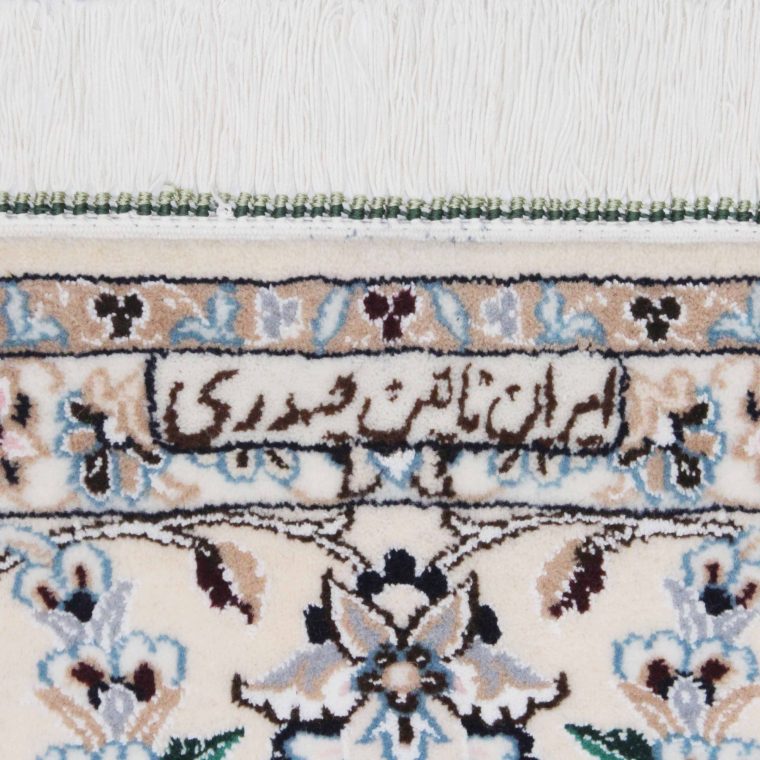 ایران نائین صدری